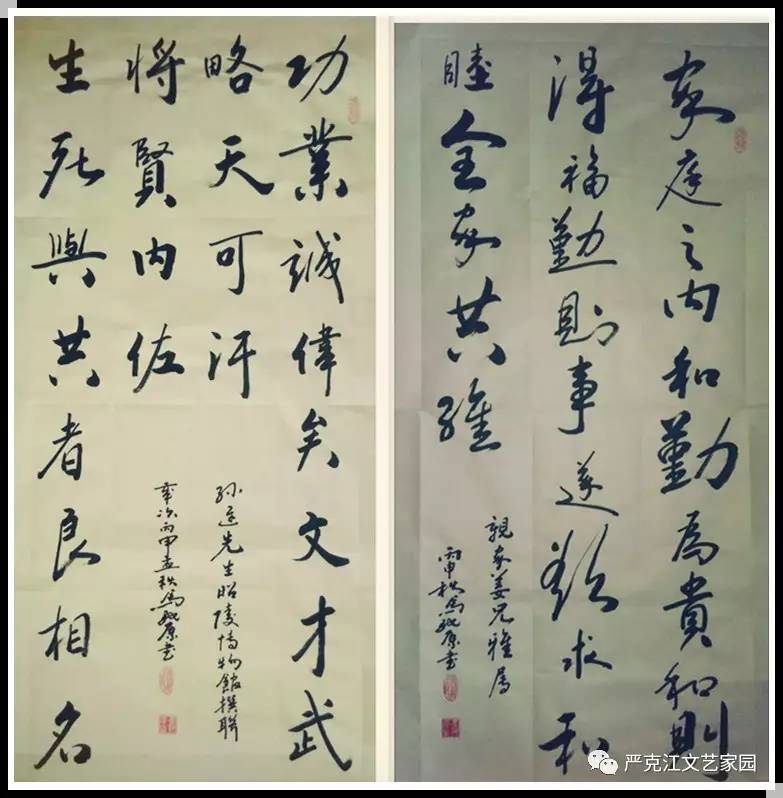 功業誠偉矣文才武
略天可汗
生死與共者良相名
將賢内佐
孙迟先生昭陵博物館撰聯
歲次丙申孟秋馬原書
家庭之内和勤為貴和則
得福勤則事遂欲求和
睦全家共維
親家姜兄雅屬
丙申秋馬原書
严克江文艺家园